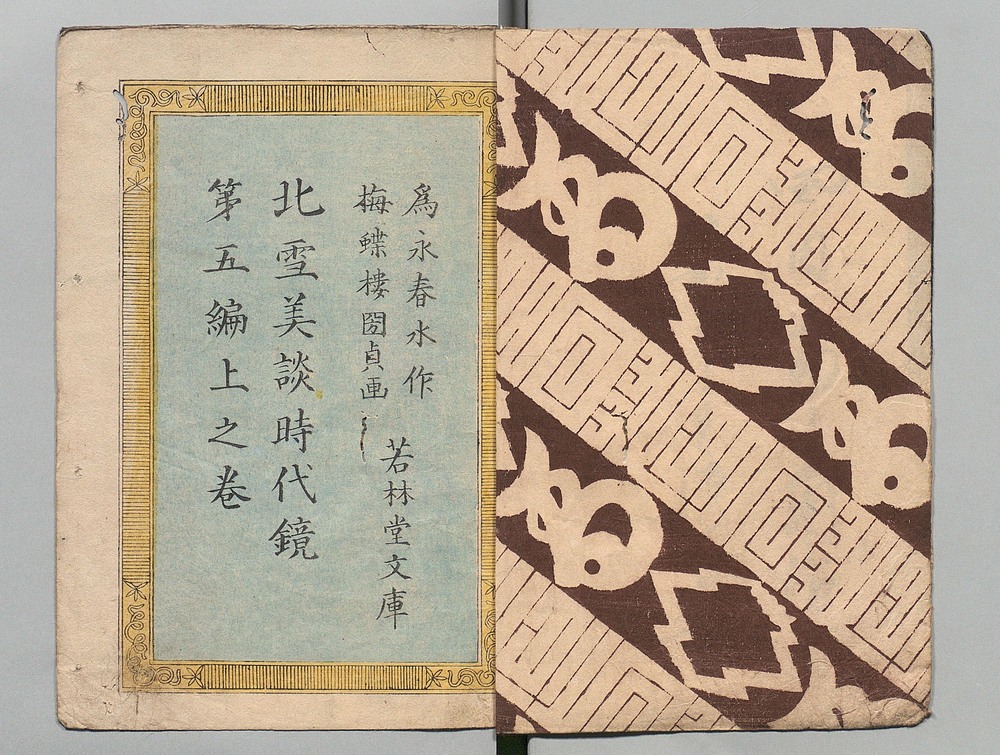 爲永春水作
梅蝶樓圀貞画
若林堂文庫
北雪美談時代鏡
第五編上之卷